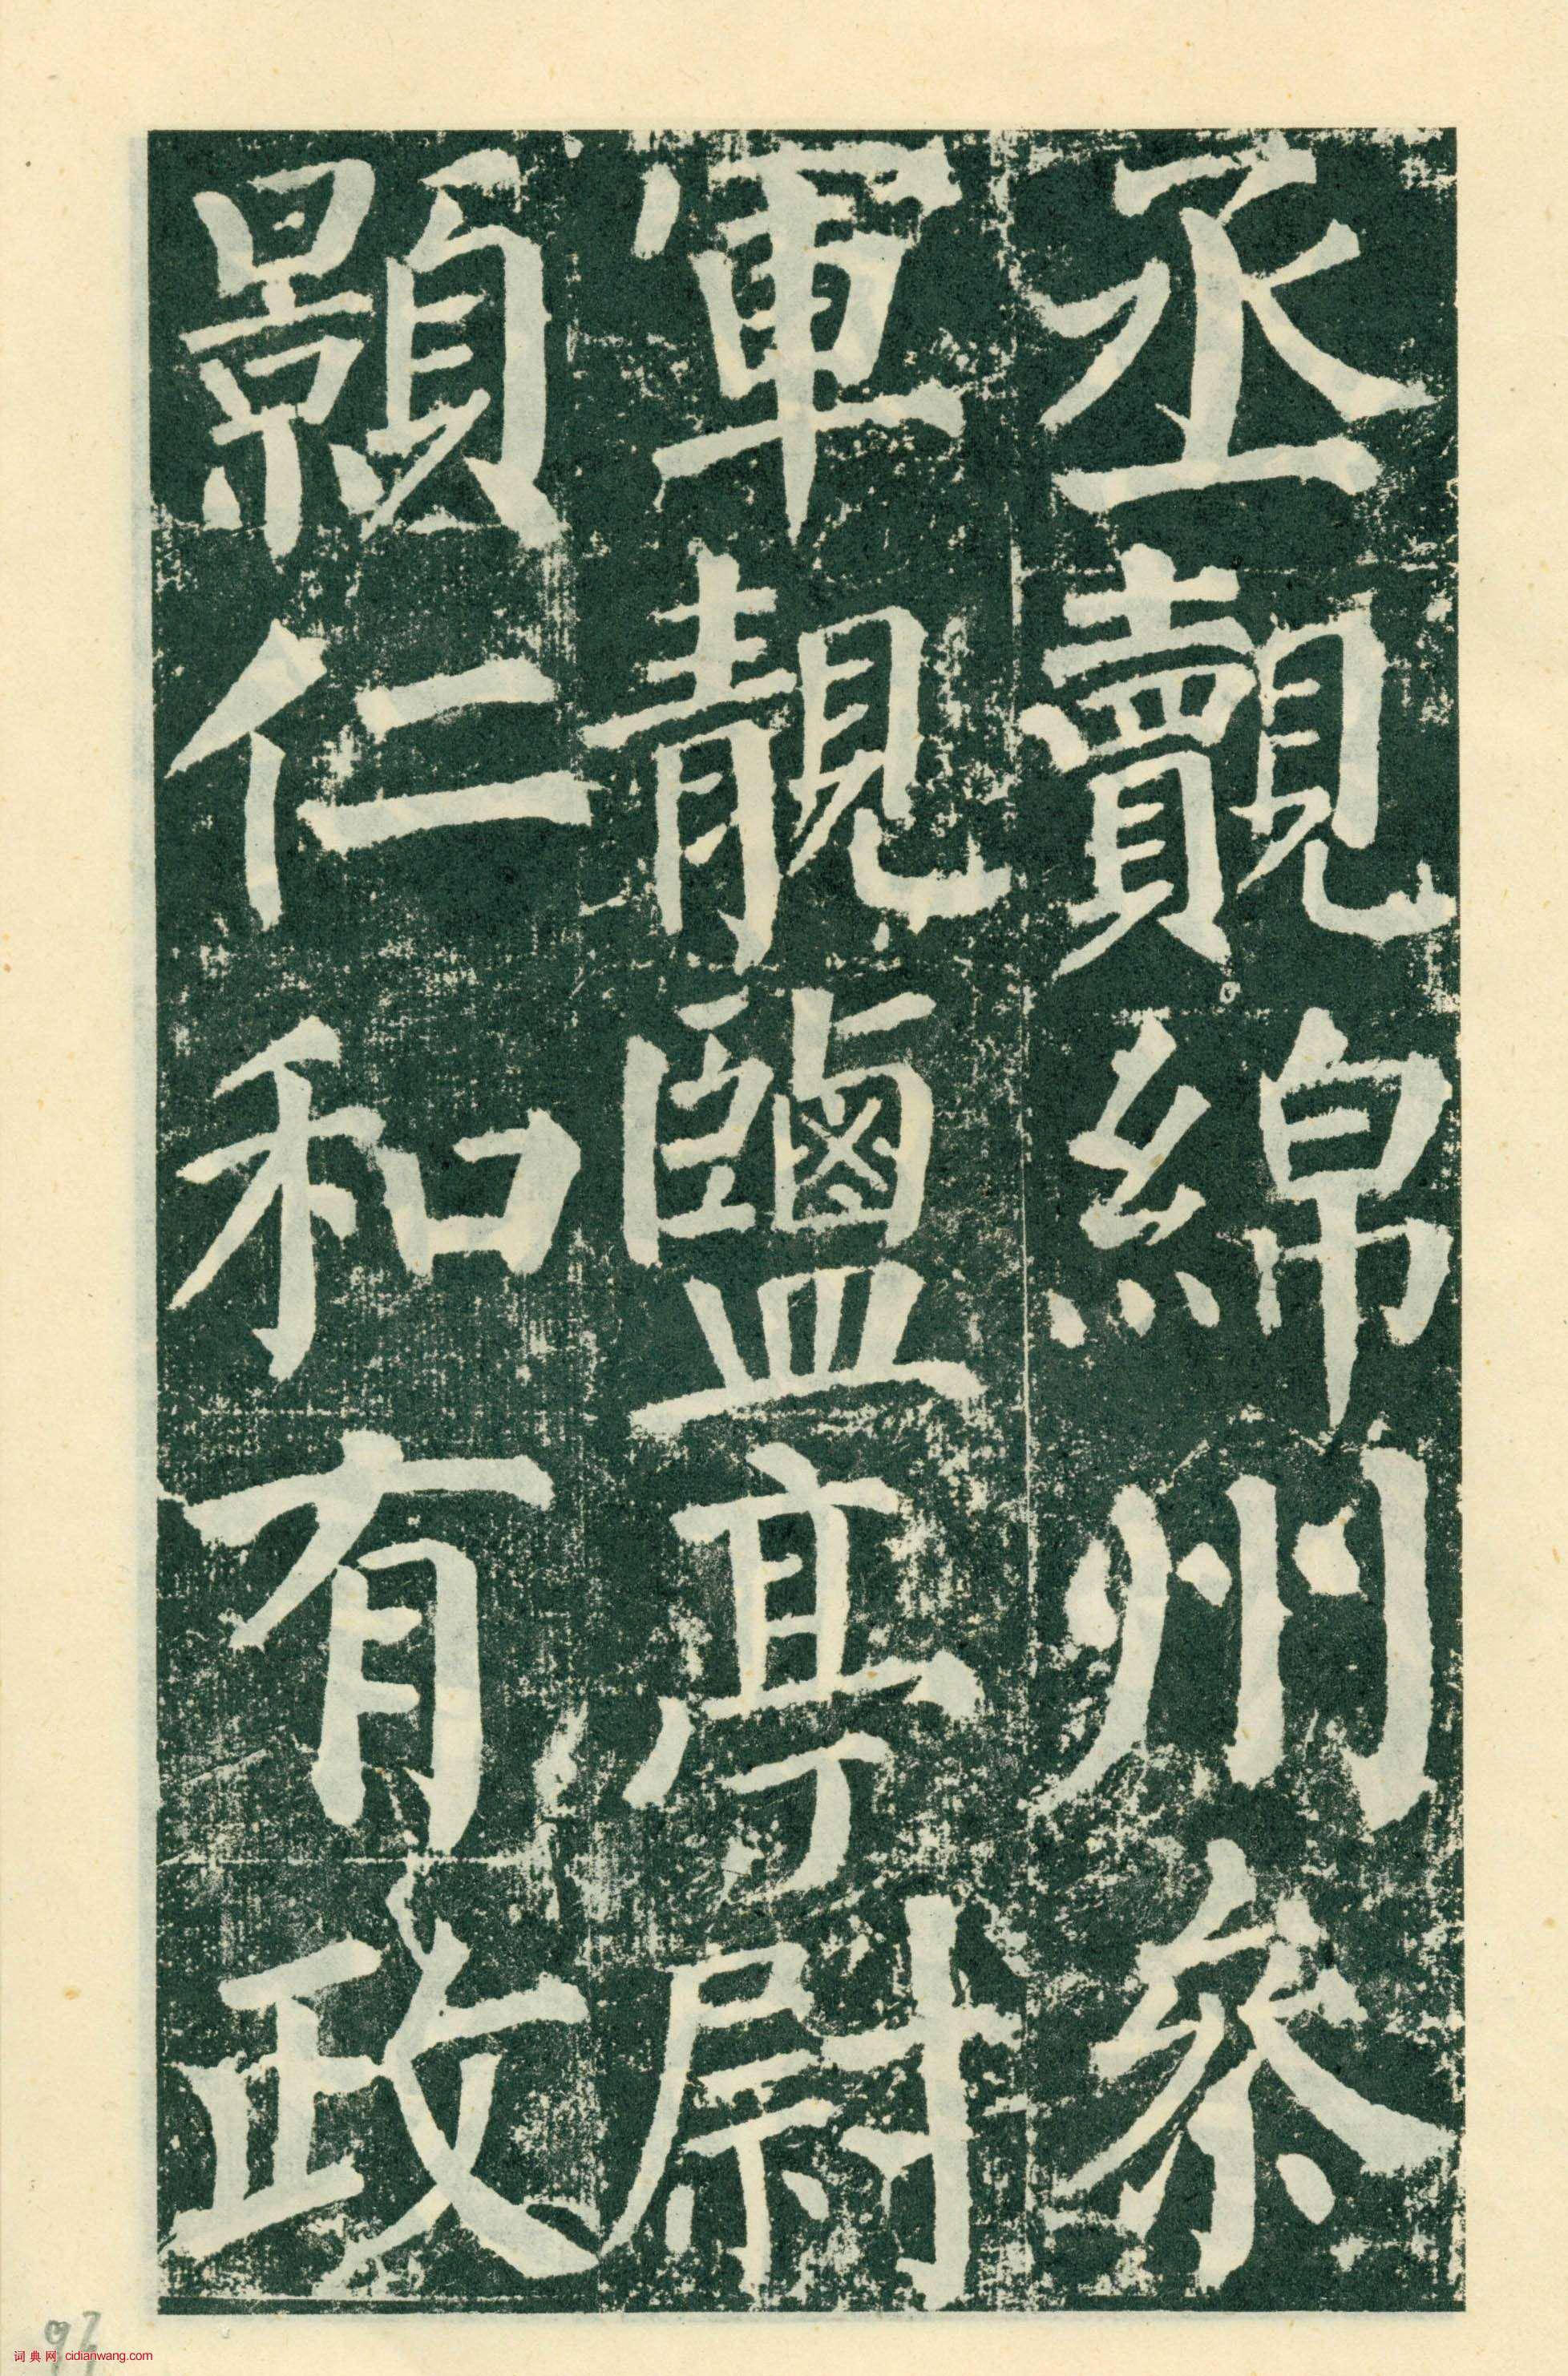 丞覿綿州參
軍靚鹽亭尉
顥仁和有政
词典网 cidianwang.com